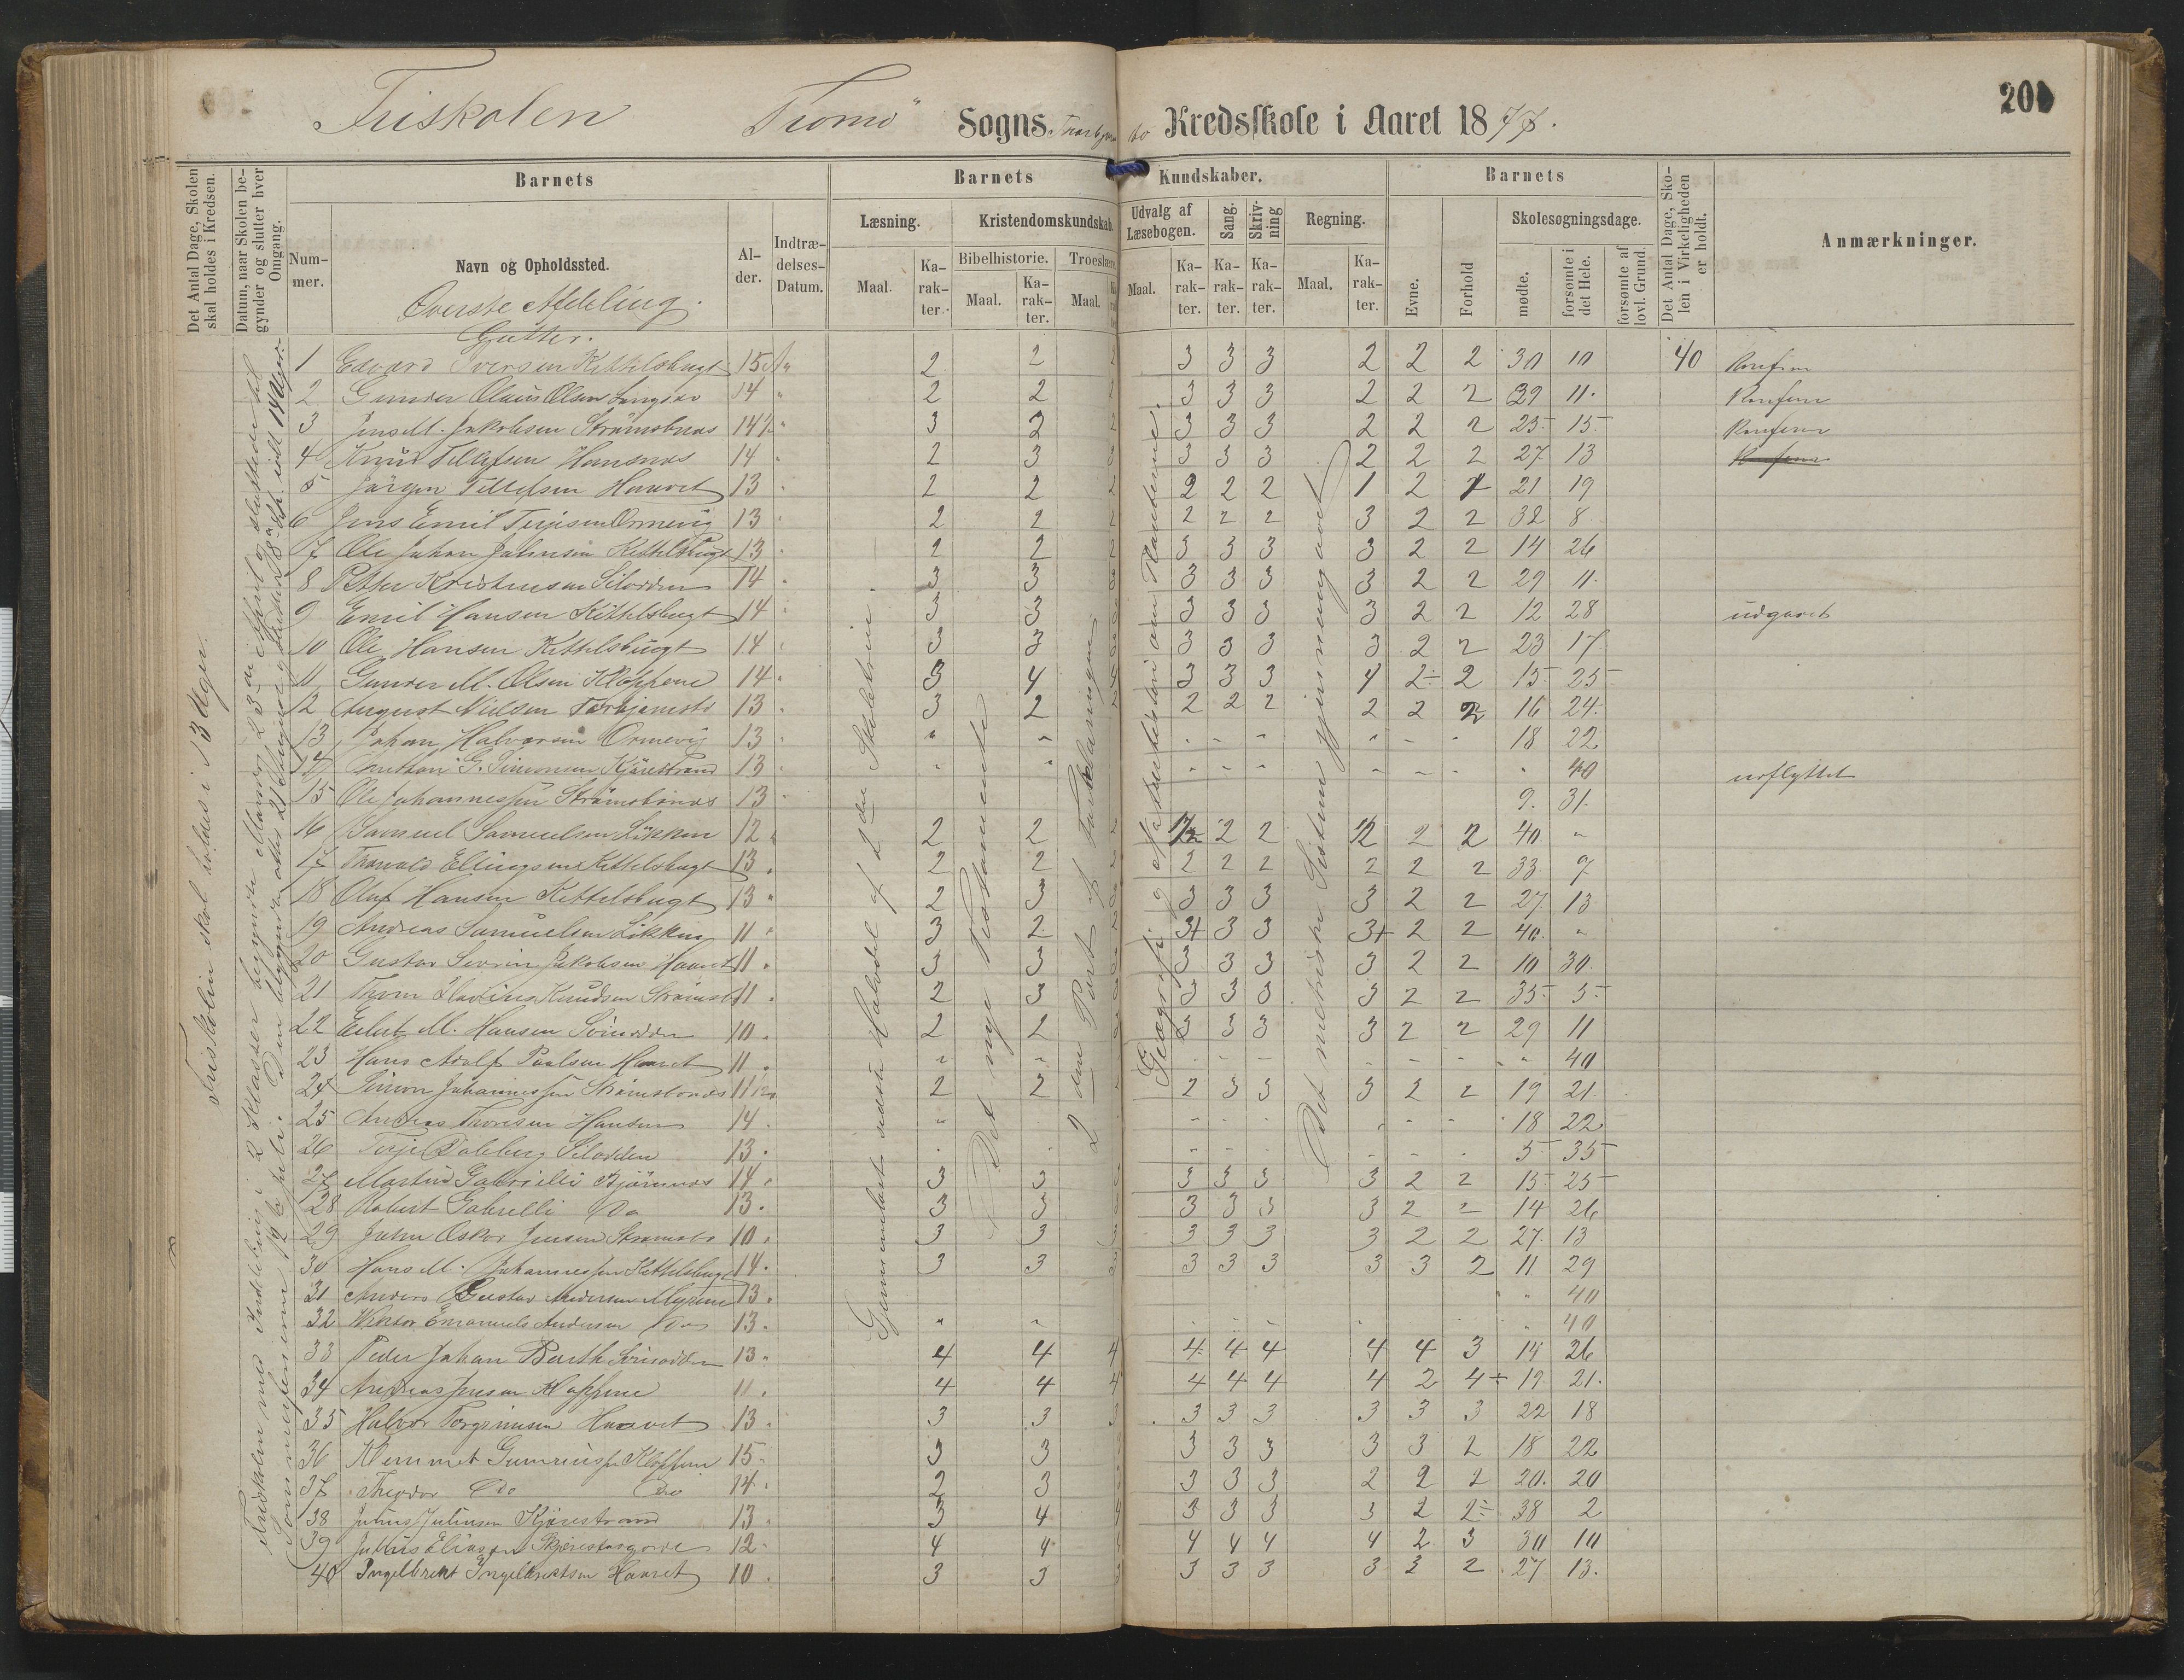 Friskolen Tromö Sogns Kredsskole i Aaret 1878.
201
Det Antal Dage, Skolen skal holdes i Kredsen.
Datum, naar Skolen begynder og slutter hver Omgang.
Barnets
Nummer.
Navn og Opholdssted.
Alder.
Indtrædelses-Datum.
Barnets Kundskaber.
Læsning.
Maal.
Karakter.
Kristendomskundskab.
Bibelhistorie.
Maal.
Karakter.
Troeslære.
Maal.
Udvalg af Læsebogen.
Maal.
Karakter.
Sang.
Karakter.
Skrivning
Karakter.
Regning.
Maal.
Karakter.
Barnets
Evne.
Forhold
Skolesøgningsdage.
mødte.
forsømte i det Hele.
forsømte af lovl. Grund.
Det Antal Dage, Skolen i Virkeligheden er holdt.
Anmærkninger.
Överste Afdeling.
Gutter.
Friskolen skal holdes i 13 Uger.
Gjennemlæst sidste Halvdel af 2den Skoletrin.
Det nye Testamente
2den Part af Forklaringen
Geografi og
Det metriske Sistem gjennemgaaet
1 Edvard Iversen Kittelsbugt 15 2 2 2 3 3 3 2 2 2 30 10 40 Konfirm
2 Gunder Olaus Olsen 14 " 2 2 2 3 3 3 2 2 2 29 11. Konfirm
3 Jens M. Jakobsen Strömsbunes 14½ " 3 2 3 3 3 2 2 2 25 15 Konfirm
4 Knud Tellefsen Hansnes 14 2 3 3 3 3 3 2 2 2 27 13
5 Jörgen Tellefsen Haavet 13 2 2 2 2 2 2 1 2 1 21 19
6 Jens Emil Terjesen Ormevig 13 2 2 2 2 2 2 3 2 2 32 8
7 Ole Johan Johnsen Kittelsbugt 13 2 2 2 3 3 3 3 2 2 14 26
8 Petter Kristensen Silodden 14 3 3 3 3 3 3 3 2 2 29 11.
9 Emil Hansen Kittelsbugt 14 3 3 3 3 3 3 3 2 2 12 28 udgaaet
10 Ole Hansen Kittelsbugt 14 3 3 3 3 3 3 3 2 2 23 17
11 Gunder M. Olsen Kloppene 14 3 4 3 3 3 4 2÷ 2 15 25
12 August Nielsen Torbjörnsbo 13 3 2 2 2 2 2 2 2 16 24.
13 Johan Halvorsen Ormevig 13 " " - - - " - - 18 22
14 G. Simonsen Kjærestrand 13 " " - - - - - - " 40 udflyttet
15 Ole Johannessen Strömsbunes 13 9. 31.
16 Samuel Samuelsen Lökken 12 2 2 2 1/2 2 2 1/2 2 2 40. "
17 Thorvald Ellingsen Kittelsbugt 13 2 2 2 2 2 2 2 2 2 33 7
18 Oluf Hansen Kittelsbugt 13 " 2 3 3 3 3 3 2 2 27 13
19 Andreas Samuelsen Lökken 11 " 3 2 3+ 3 3 3+ 2 2 40. "
20 Gustav Severin Jakobsen Haavet 11 3 3 3 3 3 3 2 2 10 30.
21 Knudsen Strömsb 11. 2 3 3 3 3 3 2 2 35 5
22 Eilert M. Hansen 10. 2 2 3 3 3 3 2 2 29 11
23 Hans Adolf Paulsen Haavet 11 " " - - - - - - " 40
24 Simon Johannessen Strömsbunes 11½ 2 2 2 3 3 3 2 2 19 21.
25 Andreas Thoresen Hansnes 14. " - - - - - - 18 22
26 Terje Daleberg Silodden 13. - - - - - - 5 35
27 Martin Gabrielli Bjömnes 14 3 3 3 3 3 3 2 2 15 25
28 Robert Gabrielli Do 13. 3 3 3 3 3 3 2 2 14 26
29 John Oskar Jensen Strömsbo 10. 3 3 3 3 3 3 3 2 2 27. 13
30 Hans M. Johannessen Kittelsbugt 14. 3 3 3 3 3 3 3 3 2 11 29
31 Anders Gustav Andersen Myrene 13. " 40
32 Viktor Emanuels Andersen Do 13. " - " 40
33 Peder Johan Barth 13 4 4 4 4 4 4 4 4 3 14 26
34 Andreas Jensen Kloppene 11. 4 4 4 4 4 4 4 2 4÷ 19 21.
35 Halvor Torgrimsen Haavet 13. 3 3 3 3 3 3 3 3 3 22 18
36 Klemmet Kloppene 15 3 3 3 3 3 3 3 3 2 18 22
37 Theodor Do Do 14. 2 3 3 3 3 3 2 2 2 20. 20
38 Julius Juliusen Kjærestrand 13 3 4 4 3 3 3 3 2 2÷ 38 2
39 Julius Eliassen 12 4 4 4 4 4 4 4 2 3 30 10
40 Ingelbrikt Ingelbriktsen Haavet 10. 3 3 3 3 3 3 3 3 2 27 13.